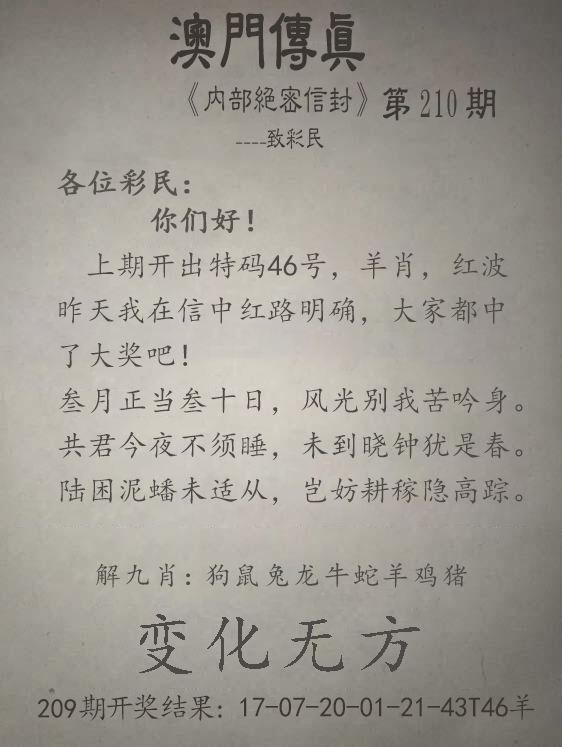 澳門傳真
《内部絕密信封》第210期
----致彩民
各位彩民：
你们好！
上期开出特码46号，羊肖，红波
昨天我在信中红路明确，大家都中
了大奖吧！
叁月正当叁十日，风光别我苦吟身。
共君今夜不须睡，未到晓钟犹是春。
陆困泥蟠未适从，岂妨耕稼隐高踪。
解九肖：狗鼠兔龙牛蛇羊鸡猪
变化无方
209期开奖结果：17-07-20-01-21-43T46羊